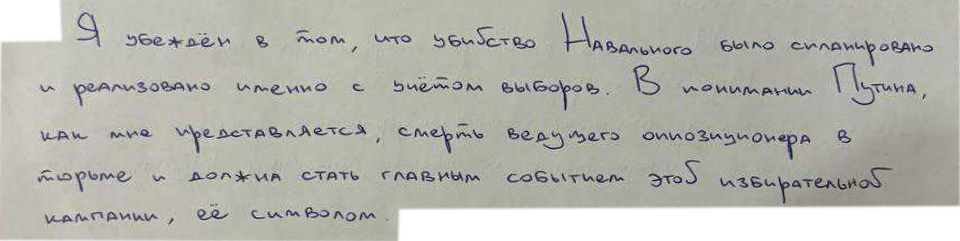 Я убеждён в том, что убийство Навального было спланировано
и реализовано именно с учётом выборов. В понимании Путина,
как мне представляется, смерть ведущего оппозиционера в
тюрьме и должна стать главным событием этой избирательной
кампании, её символом.